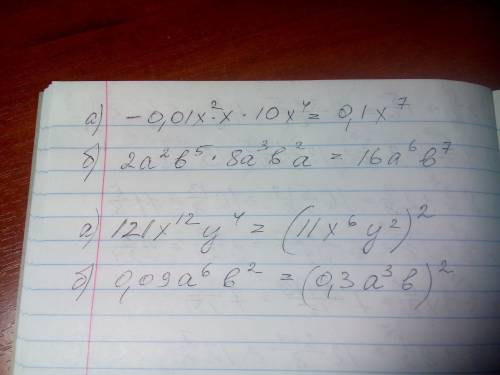 а) -0,01x²·x·10x⁴ = 0,1x⁷
б) 2a²b⁵·8a³b²a = 16a⁶b⁷
а) 121x¹²y⁴ = (11x⁶y²)²
б) 0,09a⁶b² = (0,3a³b)²